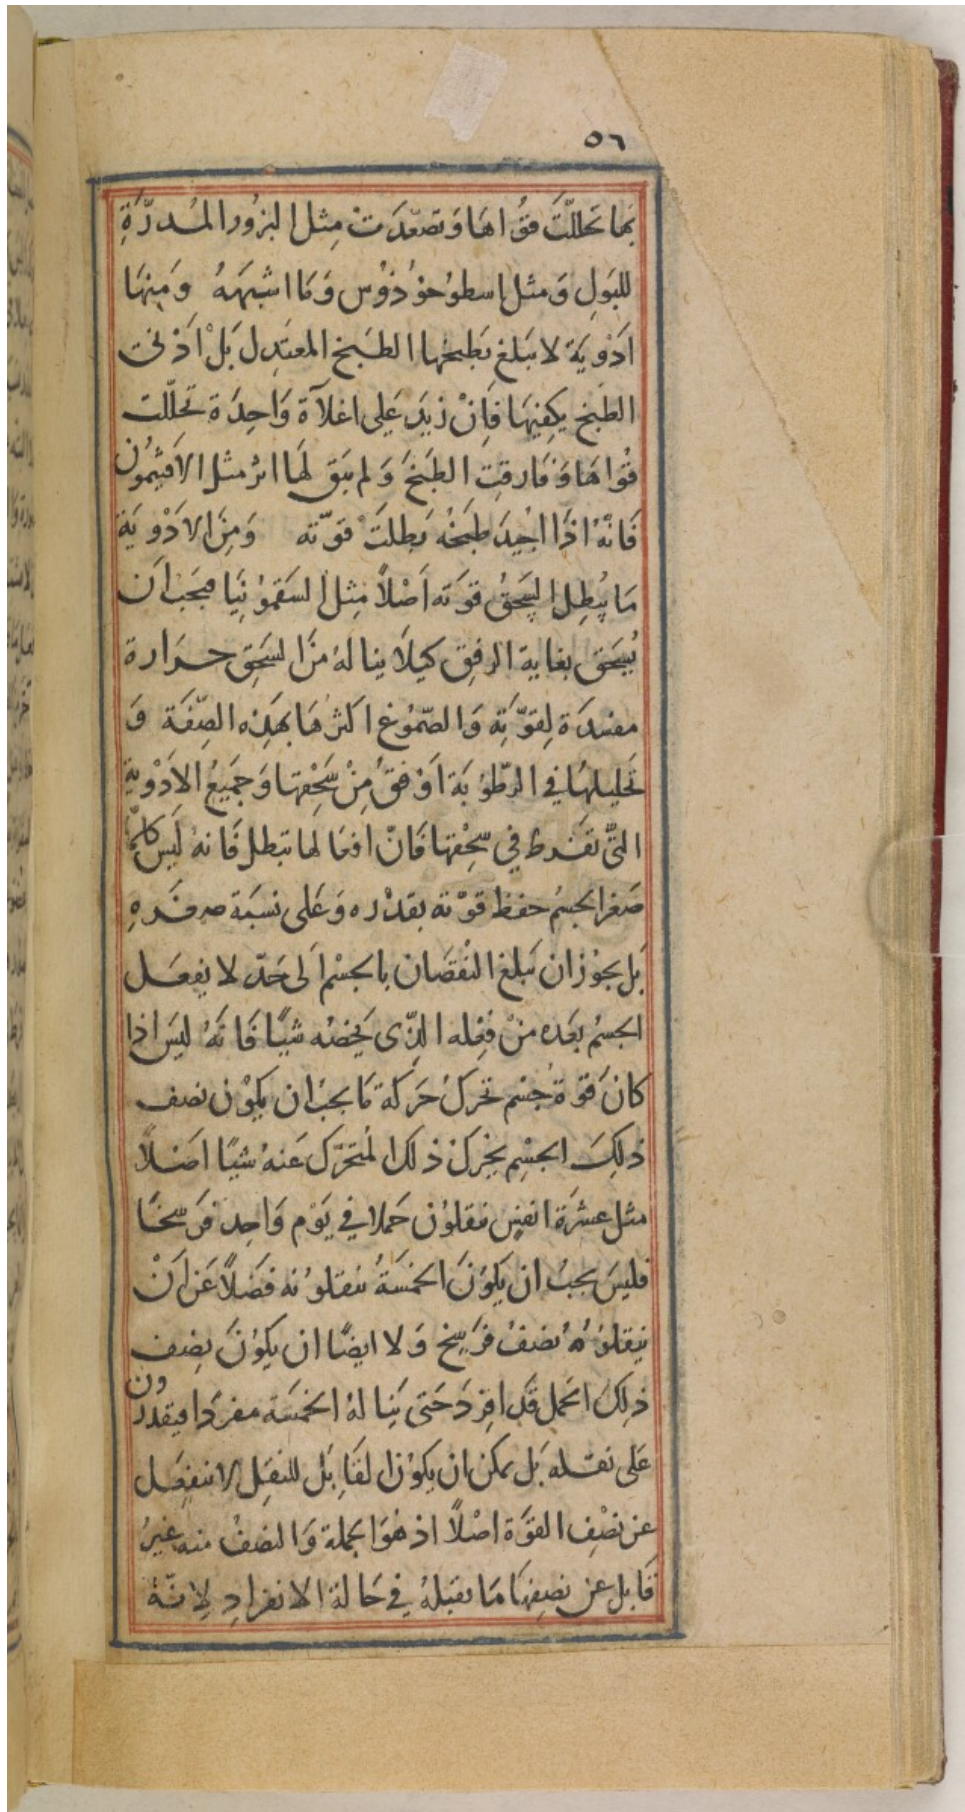 ٥٦
بها تحللَّتْ قوُاهَا وَتصعّدَتْ مِثل البزُور المُدرَّةِ
للبَولِ وَمثل اسطوُخوُذوُس وَمَا اشبهَهُ وَمِنهَا
اَدْويَة لا يبَلغ بطبخها الطبَخ المعتدِل بَلْ اَدْنى
الطبخ يكفِيهَا فاِنْ زيدَ عَلى اغلآة وَاحِدَة تحللّت
قوُاهَا وَفَارقتِ الطبَخَ وَلم يبَق لهَا اثرُ مثل الافثيمُون
فَانّهُ اذَا اجُيدَ طبَخهُ بَطلَتْ قوّته وَمِنَ الادْويَة
مَا يُبطِل السحقُ قوتَه اَصْلاً مِثل السَقموُنيَا فيجَب اَن
يُسحَق بغاية الرفِق كيلاَ يناله مِنَ السَحِق حرَارة
مفسدَة لِقوّتِه وَالصّموُغ اكثرهَا بهَذِه الصِّفَة وَ
تَحليلهُا في الرطّوُبَة اَوْفقُ مِنْ سَحِقها وَجَميعُ الادْويَة
التَّي تفرط في سحِقها فَانْ افعَالها تبطل فَانهُ ليَس كلمّا
صَغر الجسمُ حفظ قوْته بقدْره وَعَلى نسبَة صغَرهِ
بَل يجوُز ان يَبلغ النُقصَان بالجسْم اَلى حَدّ لا يفعَل
الجسمُ بعَده منْ فِعْله الذَّى يَخصّه شيًا فَانهُ ليسَ اذا
كانَ قوةُ جسْم تحركُ حَركة مَا يجب ان يكوْن نصف
ذلِكَ الجسْمِ يحرك ذلكَ المُتحَرّك عَنهُ شيًا اصْلاً
مثل عشرَة انفسٍ ينقلوُن حَملا في يوَم وَاحِد فرَسخًا
فليسَ يجبُ ان يكَوُنَ الخمسَةُ ينقلوُنه فضَلاً عَن اَنْ
ينقلوُهُ نصْفُ فرَسخ وَلا ايضًا ان يكوُنَ نصِف
ذلِكَ الحمل قدَ افرِدَ حَتى يَنالهُ الخمسَة مفردًا فيقدرُون
عَلى نقله بَل يمكن ان يكوُن القَابَل للنقِل لا ينفصَل
عن نصْفِ القوَّة اصْلاً اذ هُوَ الجملة وَالنصْفُ منه غيرُ
قَابل عن نصِفهَا مَا يقبَلهُ في حَالة الانفرادِ لِانهُّ